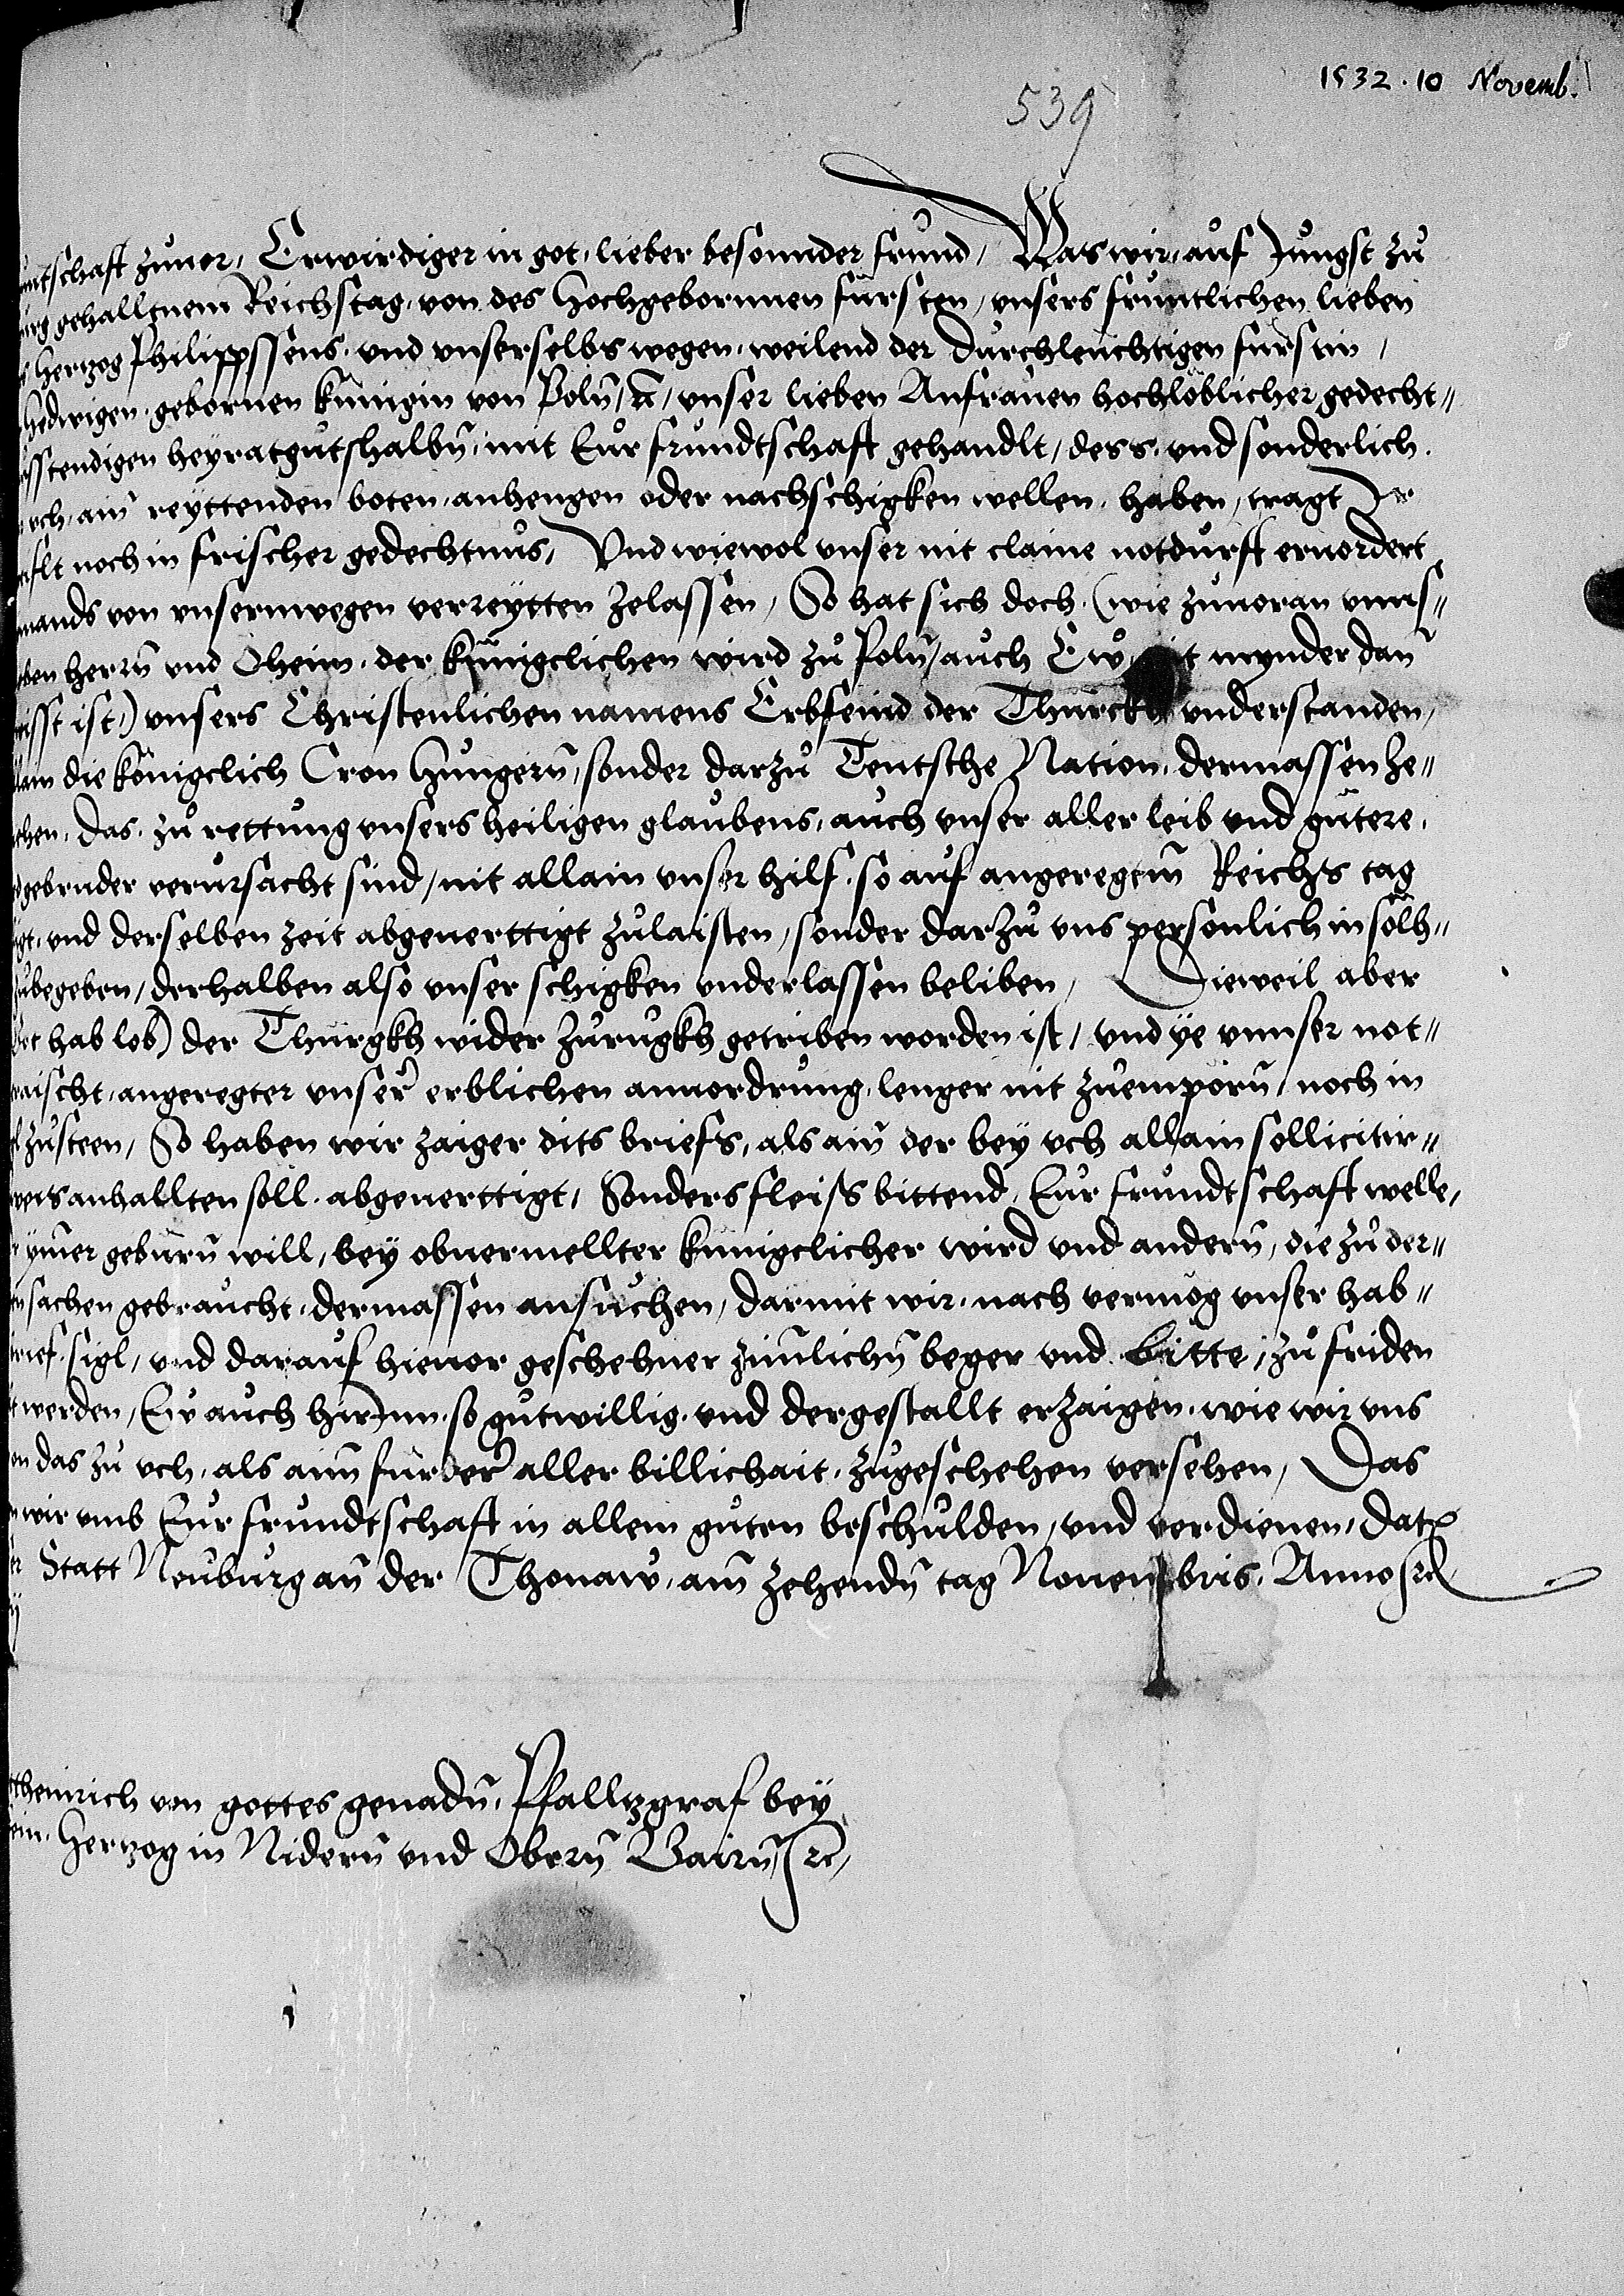 1532 · 10 Novemb.
539
untschaft zuuor, Erwirdiger in got, lieber besonnder frund, Was wir, auf Jungst zu
urg gehalltnem Reichstag, von des Hochgebornnen fursten, vnsers fruntlichen lieben
s Hertzog Philippssens, vnd vnserselbs wegen, weilend der Durchleuchtigen furstin,
Hedwigen, gebornen kunigin von Poln, rc, vnser lieben Anfrauen hochlöblicher gedecht=
usstendigen heyratgutshalbn, mit Eur frundtschaft gehandlt, dess, vnd sonderlich.
vch, ain reyttenden boten, anhengen oder nachschigken wellen, haben, tragt Ir
noch in frischer gedechtnus, Vnd wiewol vnser nit claine notdurft eruordert
mands von vnsernwegen verreytten zelassen, So hat sich doch, (wie zuuoran vnns=
ben herrn vnd Oheim, der kunigclichen wird zu Poln, auch Ew it mynder dan
isst ist,) vnsers Christenlichen namens Erbfeind der Thurckh vnderstanden,
lain die königclich Cron Hungern, sonder darzu Teutsche Nation, dermassen ze=
hen, das, zu rettung vnsers heiligen glaubens, auch vnser aller leib vnd gutere,
gebruder verursacht sind, nit allain vnser hilf, so auf angeregtm Reichs tag
igt, vnd derselben zeit abgeuerttigt zulaisten, sonder darzu vns personlich in solh=
zubegeben, derhalben also vnser schigken vnderlassen beliben, Dieweil aber
Got hab lob) der Thurgkh wider zurugkh getriben worden ist, vnd ye vnnser not=
raischt, angeregter vnser erblichen anuordrung, lenger nit zuemporn, noch in
l zusteen, So haben wir zaiger dits briefs, als ain der bey vch allain sollicitir=
weis anhallten soll, abgeuerttigt, Sonders fleiss bittend, Eur frundtschaft welle,
ymer geburn will, bey obuermellter kunigclicher wird vnd andern, die zu der=
n sachen gebraucht, dermassen ansuchen, darmit wir, nach vermög vnser hab=
brief, sigl, vnd darauf hieuor geschehner zimlichn beger vnd bitte, zu friden
t werden, Eur auch hirJnn, so gutwillig, vnd dergestallt erzaigen, wie wir vns
on das zu vch, als aim furderer aller billichait, zugeschehen versehen, Das
n wir vmb Eur frundtschaft in allem guten beschulden, vnd verdienen, Dat
er Statt Neuburg an der Thonaw, am zehendn tag Nouembris, Anno rc
ij
theinrich von gottes genadn, Pfalltzgraf bey
ein, Hertzog in Nidern vnd Obern Bairn, rc,